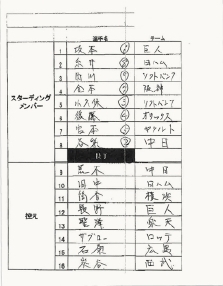 選手名 チーム
スターティング
メンバー
1 坂本 ⑥ 巨人
2 糸井 ⑧ 日ハム
3 内川 ソフトバンク
4 金本 ⑦ 阪神
5 小久保 ③ ソフトバンク
6 後藤 ④ オリックス
7 宮本 ⑤ ヤクルト
8 谷繁 ② 中日
控え
9 荒木 中日
10 田中 日ハム
11 横浜
12 巨人
13 聖澤 楽天
14 サブロー ロッテ
15 石原 広島
16 炭谷 西武